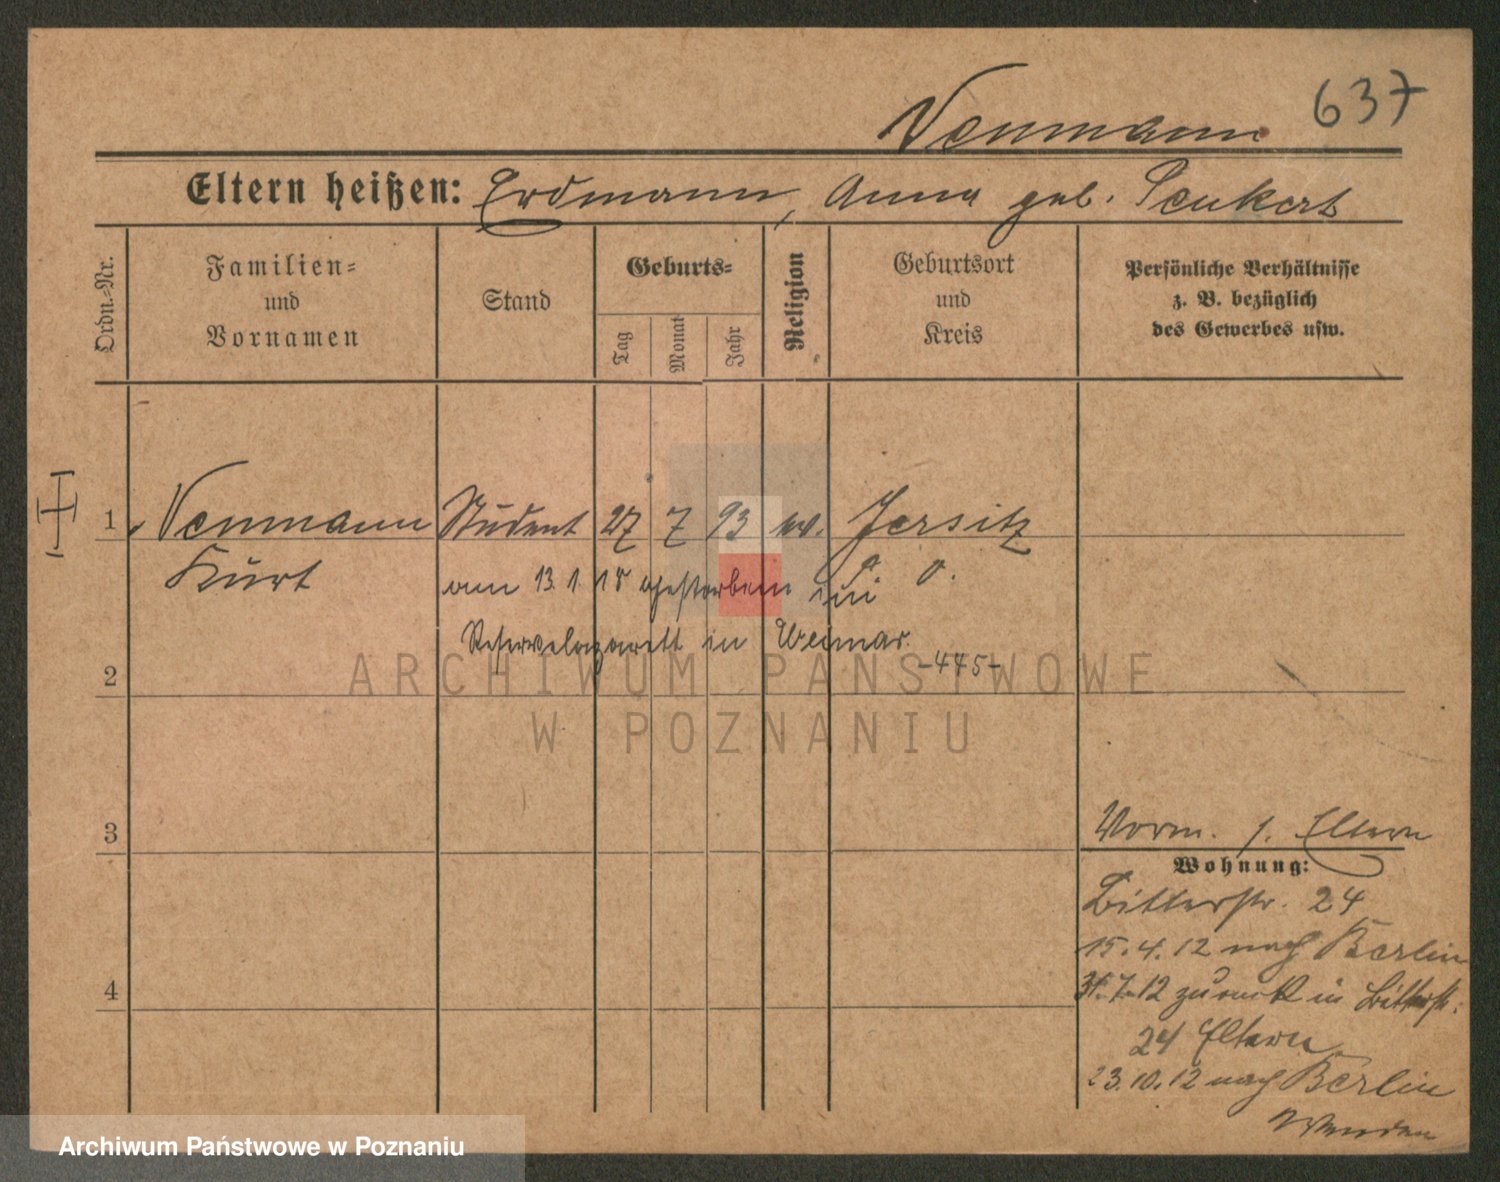 637
Neumann
Eltern heißen: Erdmann, Anna geb. Peukert
Ordn.-Nr.
Familien-
und
Vornamen
Stand
Geburts-
Tag
Monat
Jahr
Religion
Geburtsort
und
Kreis
Persönliche Verhältnisse
z. B. bezüglich
des Gewerbes usw.
1 Neumann Student 27 7 93 ev. Jersitz
Kurt
P. O.
am 13.1.18 gestorben im
Reservelazarett in Weimar.
-445-
2
3
4
Vorm. s. Eltern
Wohnung:
Bitterstr. 24
15.4.12 nach Berlin
31.7.12 zurück in Bitterstr.
24 Eltern
23.10.12 nach Berlin
Wenden
ARCHIWUM PAŃSTWOWE
W POZNANIU
Archiwum Państwowe w Poznaniu